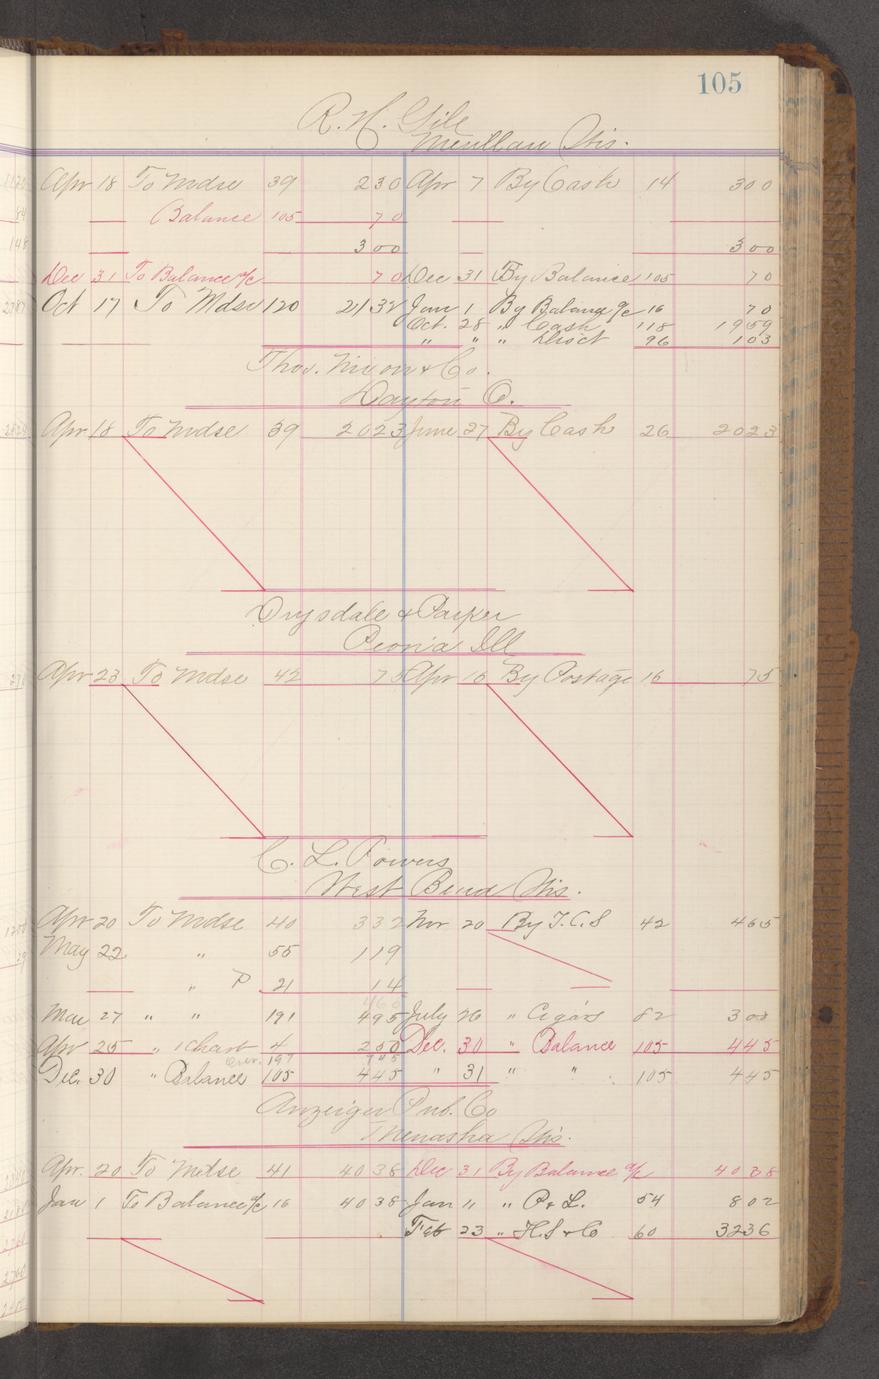 105
R. H. Gile
Merillan Wis.
Apr 18 To Mdse 39 230 Apr 7 By Cash 14 300
Balance 105 70
300 300
Dec 31 To Balance a/c 70 Dec 31 By Balance 105 70
Oct 17 To Mdse 120 2132 Jan 1 By Balance a/c 16 70
Oct. 28 " Cash 118 1959
" " " Disct 96 103
Thos. Nixon & Co.
Dayton O.
Apr 18 To Mdse 39 2023 June 27 By Cash 26 2023
Drysdale & Parker
Peoria Ill
Apr 23 To Mdse 42 75 Apr 16 By Postage 16 75
C. L. Powers
West Bend Wis.
Apr 20 To Mdse 40 332 Nov 20 By T.C.S 42 465
May 22 " 55 119
" P 21 14
465
Mar 27 " " 191 495 July 26 " Cigars 82 300
Apr 25 " 1 Chart 4 250 Dec. 30 " Balance 105 445
197 745
Dec. 30 " Balance 105 445 " 31 " " 105 445
Anzeiger Pub. Co
Menasha Wis.
Apr. 20 To Mdse 41 4038 Dec 31 By Balance a/c 4038
Jan 1 To Balance a/c 16 4038 Jan " " P & L. 54 802
Feb 23 " H.S & Co 60 3236